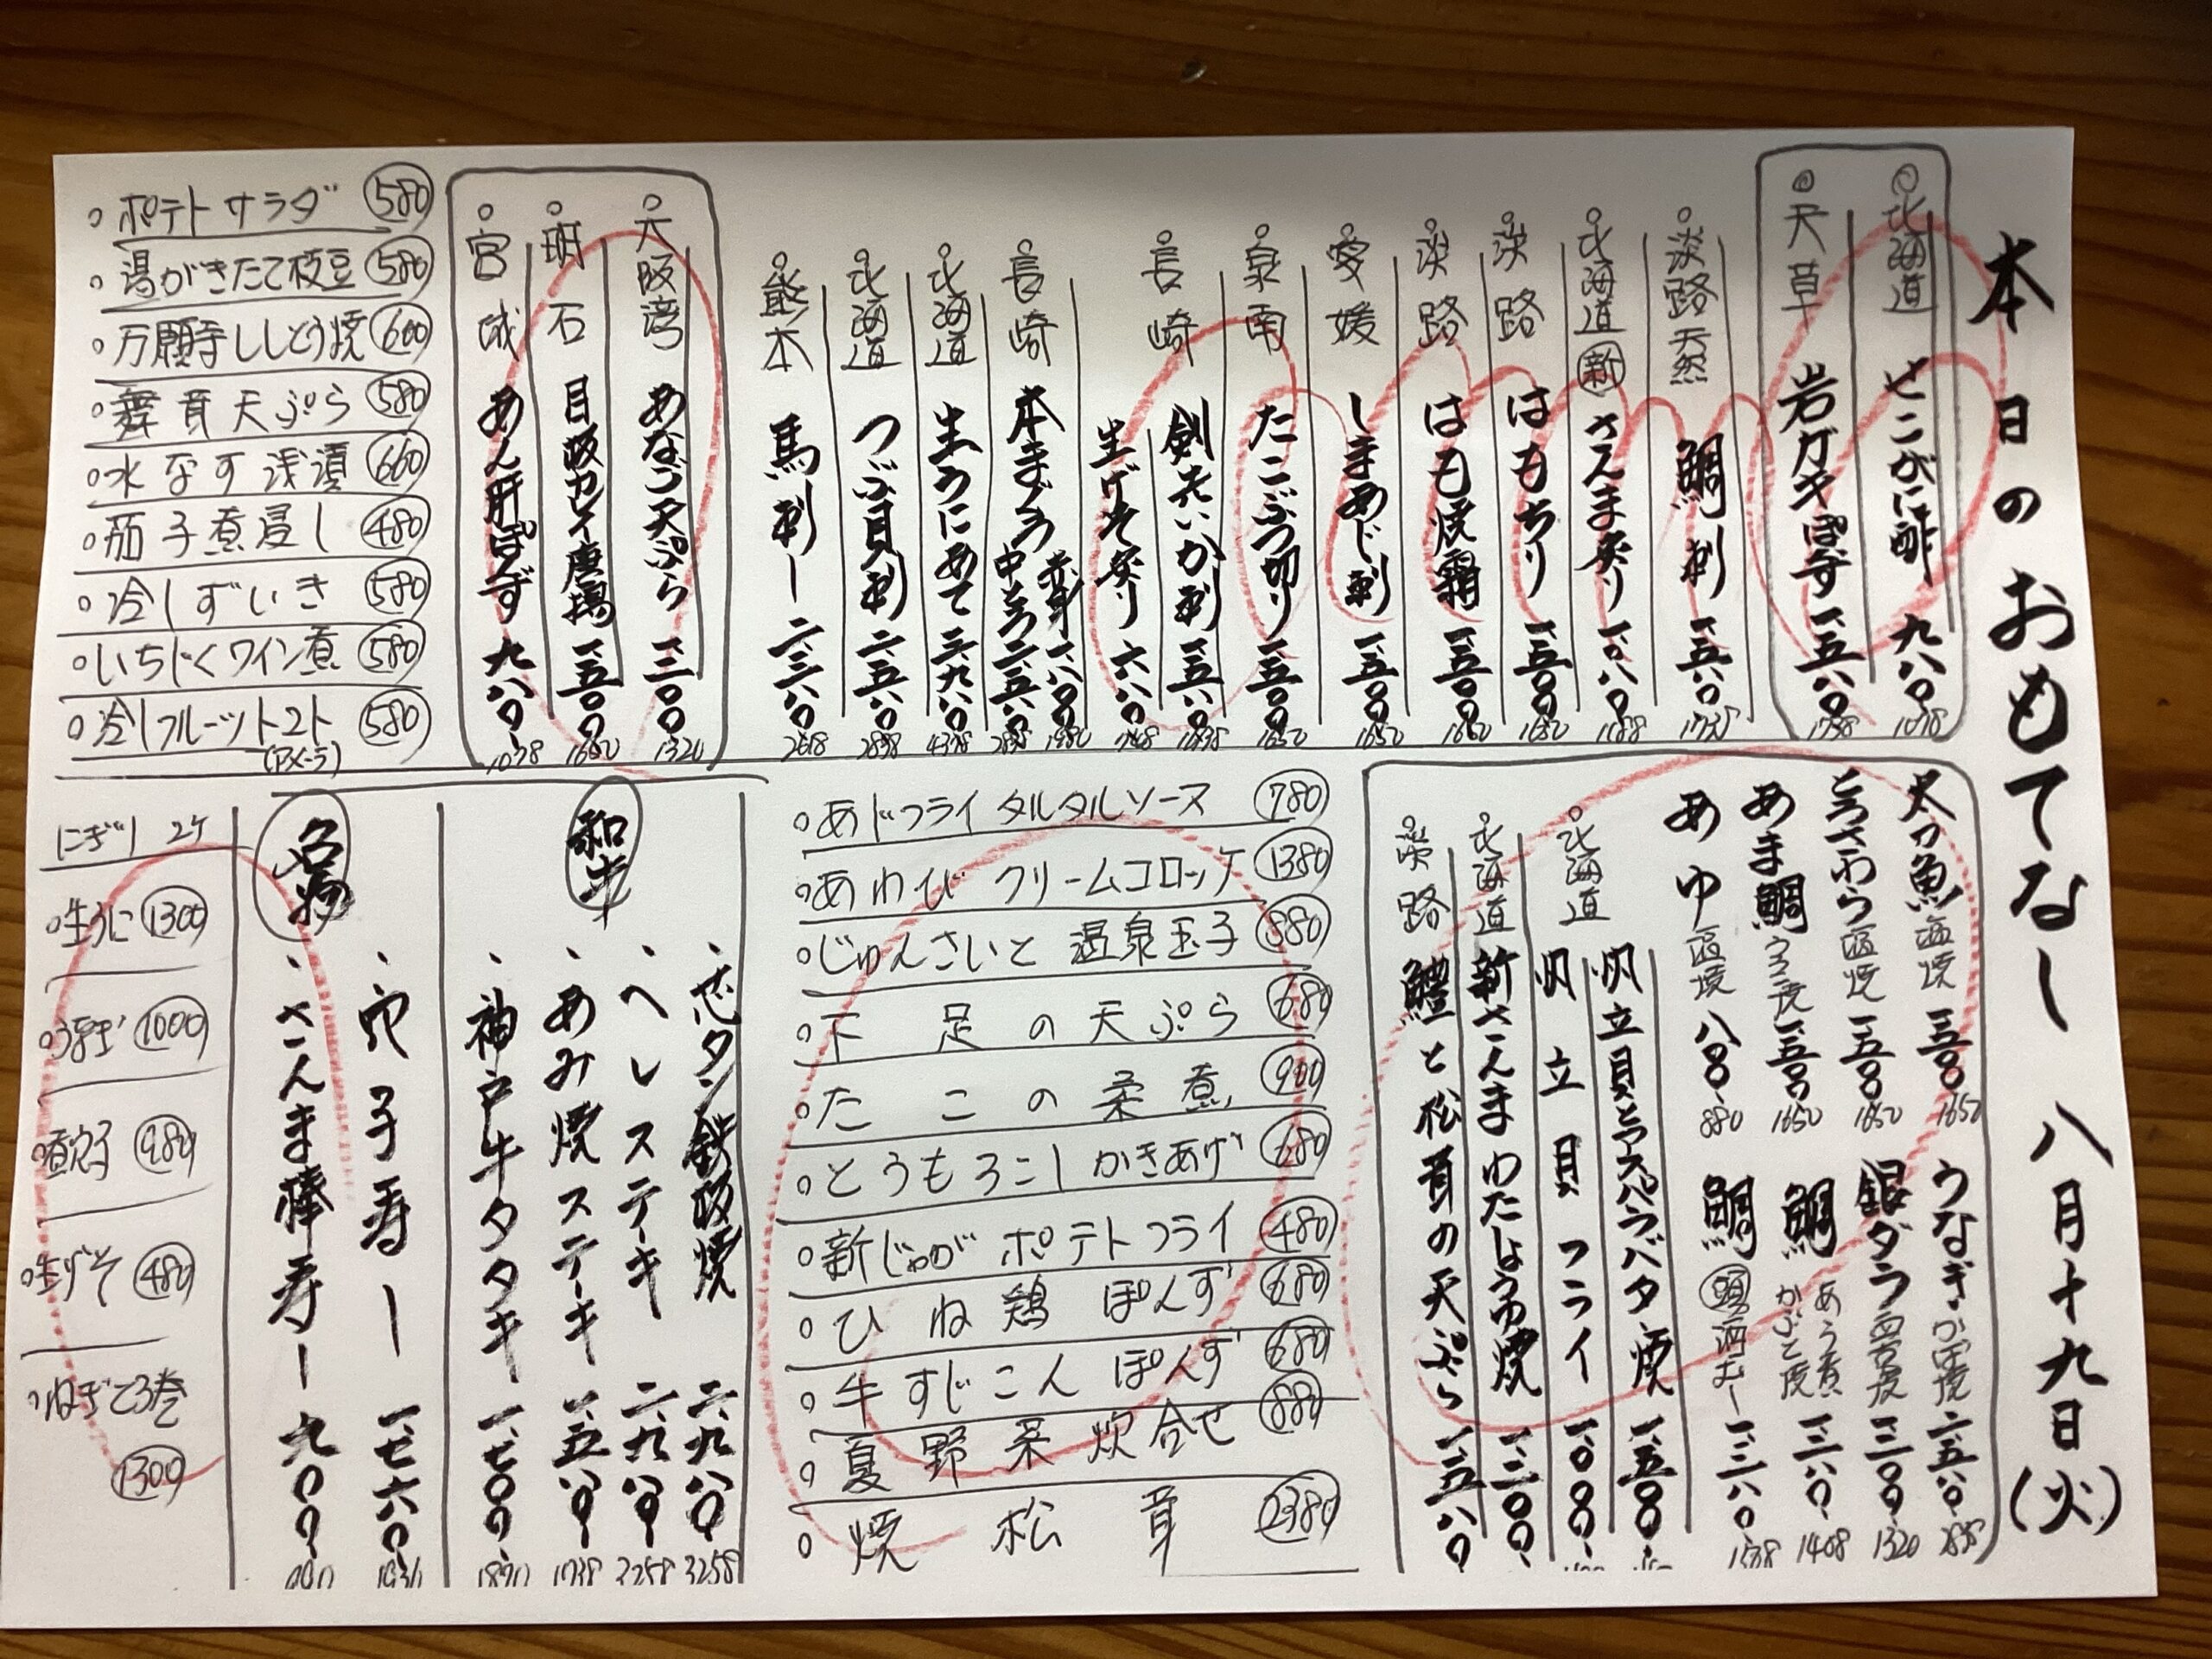 本日のおもてなし 八月十九日(火)
北海道 せこがに酢 九八〇 1078
天草 岩ガキぽんず 一、五八〇 1738
淡路天然 鯛刺 一、五八〇 1738
北海道 新 さんま炙り 一、〇八〇 1188
淡路 はもちり 一、五〇〇 1650
淡路 はも焼霜 一、五〇〇 1650
愛媛 しまあじ刺 一、五〇〇 1650
泉南 たこぶつ切り 一、五〇〇 1650
長崎 剣先いか刺 一、五八〇
生げそ炙り 六八〇 748
長崎 本まぐろ 赤身 一、八〇〇 1980
中とろ
北海道 生うにあて 三、九八〇 4378
北海道 つぶ貝刺
熊本 馬刺し
大阪湾 あなご天ぷら 一、二〇〇 1320
明石 目板カレイ唐揚 一、五〇〇 1650
宮城 あん肝ぽんず 九八〇 1078
ポテトサラダ 580
湯がきたて枝豆 580
万願寺ししとう焼 600
舞茸天ぷら 580
水なす浅漬 660
茄子煮浸し 480
冷しずいき 580
いちじくワイン煮 580
冷しフルーツトマト 580
(アメーラ)
太刀魚 塩焼 一、五〇〇 1650
とろさわら 塩焼 一、五〇〇 1650
あま鯛 うろこ焼 一、五〇〇 1650
あゆ 塩焼 八〇〇 880
うなぎ 二、五八〇
銀ダラ 西京焼 一、二〇〇 1320
鯛 あら煮 かぶと焼 一、二八〇 1408
鯛 頭 酒むし
北海道 帆立貝とアスパラバター焼 一、五〇〇
帆立貝フライ 一、〇〇〇
北海道 新さんまわたしょうゆ焼 一、二〇〇
淡路 鱧と松茸の天ぷら 一、五八〇
あじフライ タルタルソース 780
あわび クリームコロッケ 1380
じゅんさいと 温泉玉子 880
下足の天ぷら 680
たこの柔煮 900
とうもろこし かきあげ 680
新じゃが ポテトフライ 480
ひね鶏 ぽんず 680
牛すじこん ぽんず 680
夏野菜炊合せ 880
焼松茸 2380
和牛
芯タン鉄板焼 二、九八〇 3258
ヘレステーキ 二、九八〇 3258
あみ焼ステーキ 一、五八〇 1738
神戸牛タタキ 一、七〇〇 1870
名物
穴子寿し 一、七六〇
さんま棒寿し 九〇〇
にぎり 2ケ
生うに 1300
うなぎ 1000
煮穴子 980
生げそ 480
ねぎとろ巻
1300